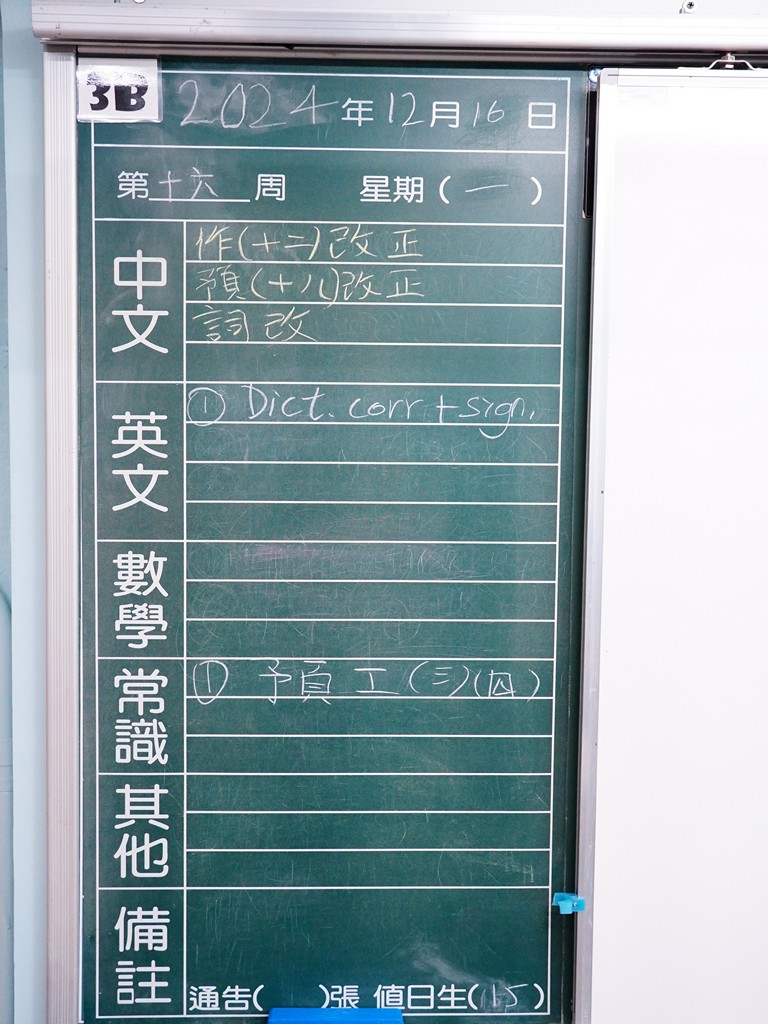 3B
2024年12月16日
第十六周 星期(一)
中文
作(十二)改正
預(十八)改正
詞改
英文
① Dict. corr + sign.
數學
常識
① 予頁工(三)(四)
其他
備註
通告( )張 值日生(15)